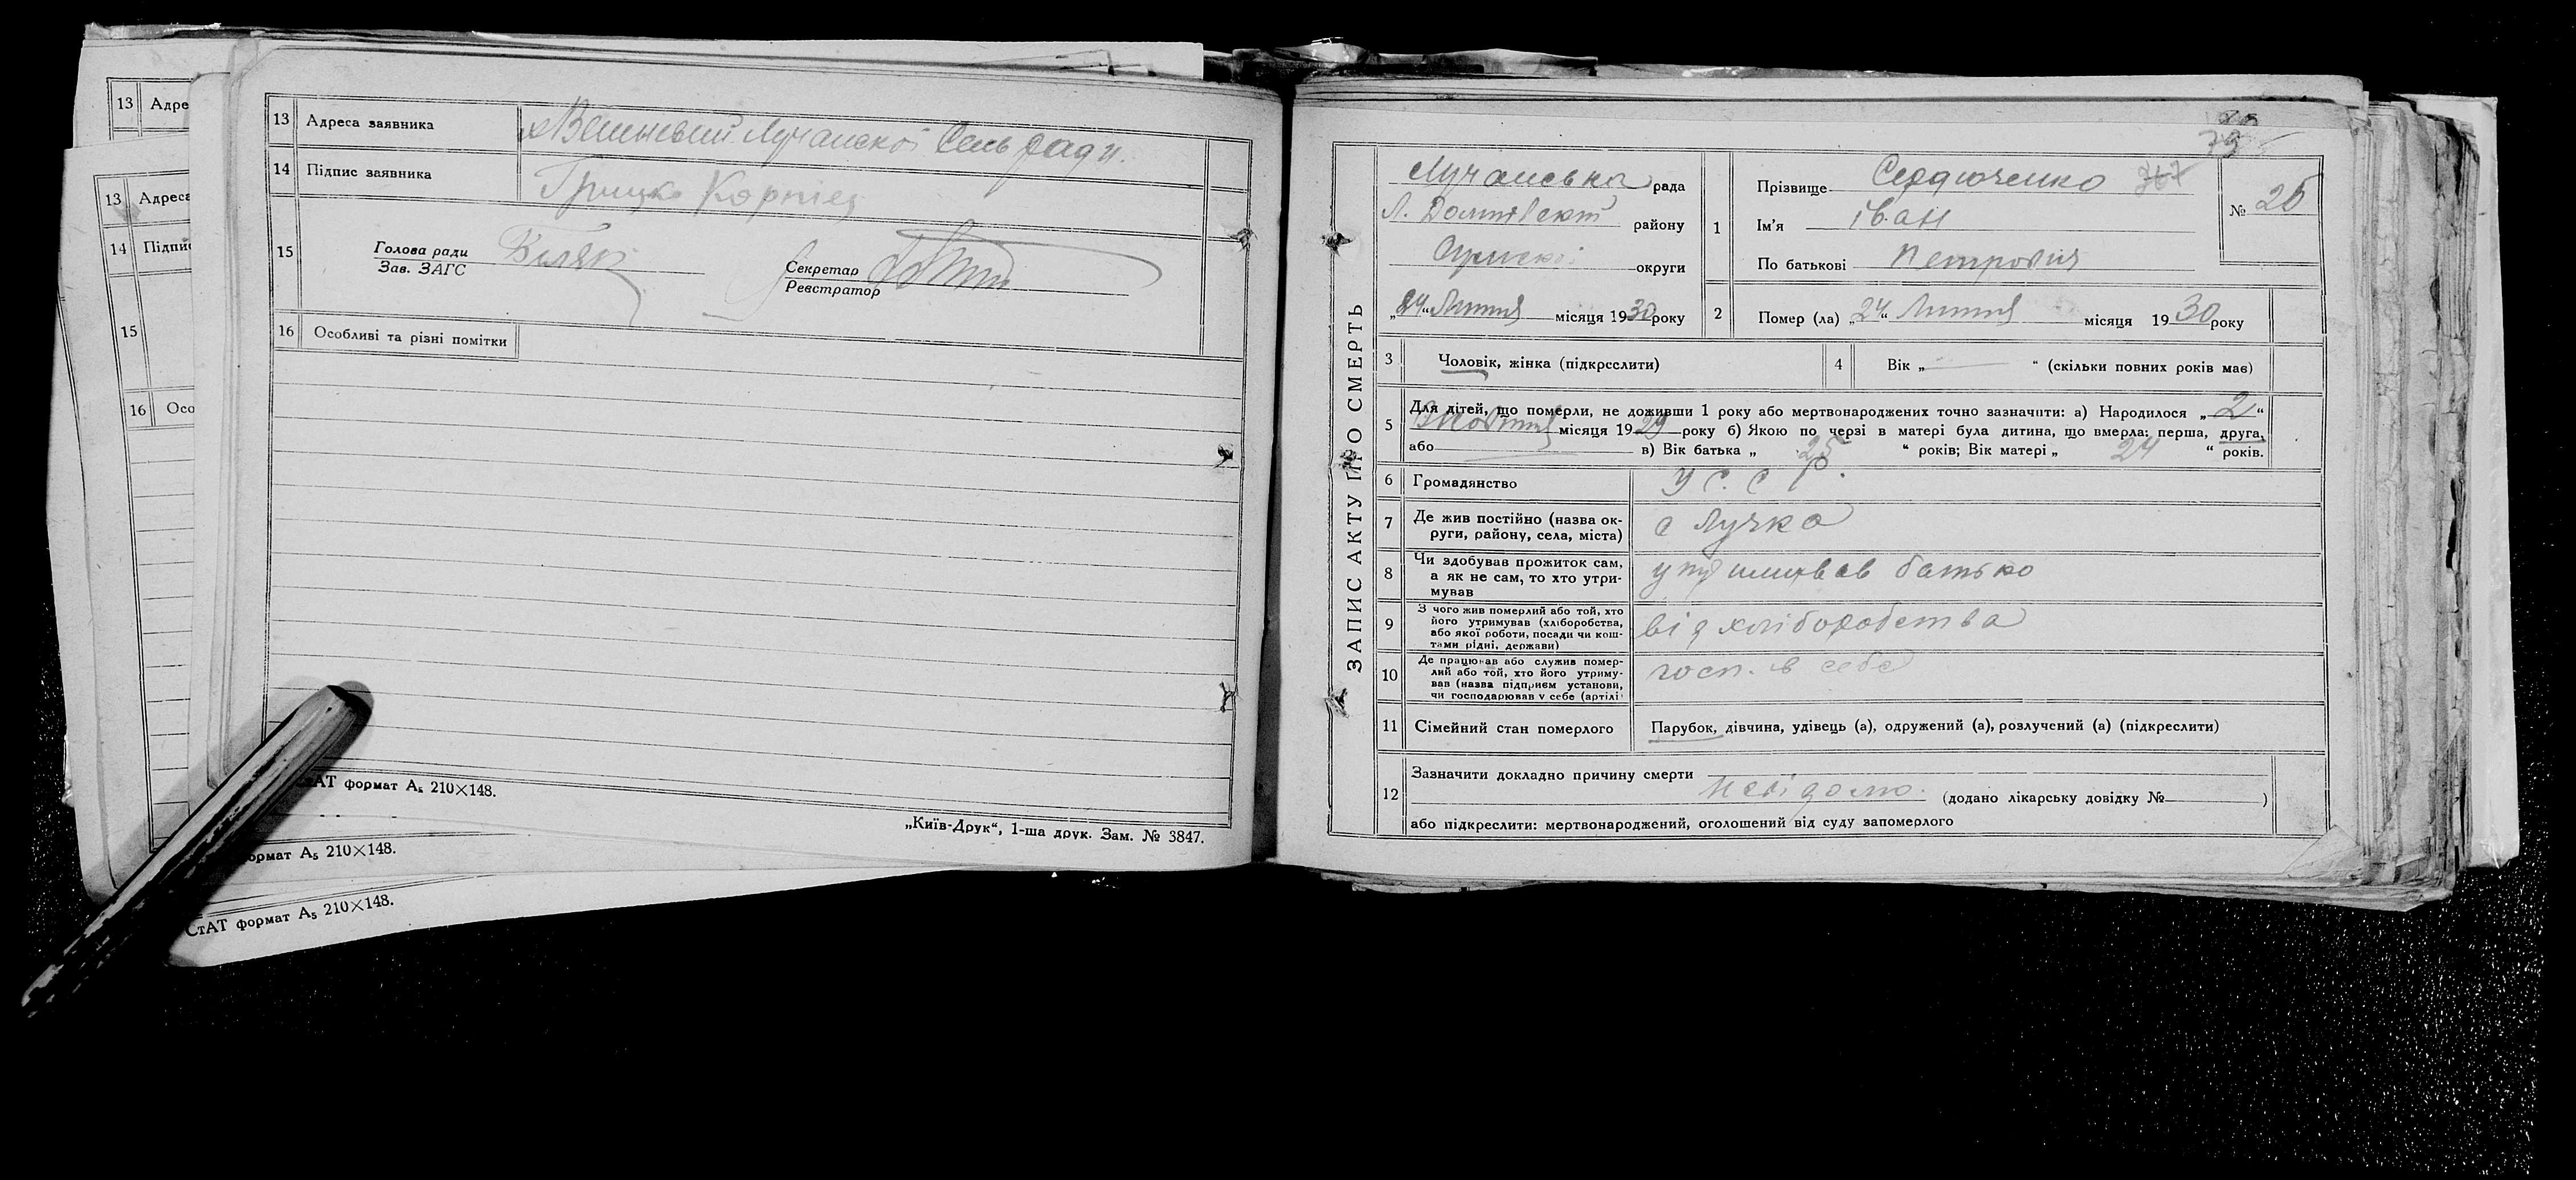 13 Адре
13 Адреса
14 Підпис
15
16 Осо
13 Адреса заявника Лучанскоі Сель ради.
14 Підпис заявника Грицко Корнієц
15 Голова ради
Зав. ЗАГС Біляк Секретар
Реєстратор
16 Особливі та різні помітки
СтАТ формат А₅ 210×148.
„Київ-Друк“, 1-ша друк. Зам. № 3847.
формат А₅ 210×148.
СтАТ формат А₅ 210×148.
79
ЗАПИС АКТУ ПРО СМЕРТЬ
Лучанська рада
району
округи
„24“ Липня місяця 1930 року
1 Прізвище Сердюченко
Ім'я Іван
По батькові Петрович
№ 25
2 Помер (ла) „24“ Липня місяця 1930 року
3 Чоловік, жінка (підкреслити)
4 Вік „ “ (скільки повних років мав)
5 Для дітей, що померли, не доживши 1 року або мертвонароджених точно зазначити: а) Народилося „2“
Жовтня місяця 1929 року б) Якою по черзі в матері була дитина, що вмерла: перша, друга,
або в) Вік батька „25“ років; Вік матері „24“ років.
6 Громадянство У С. С Р.
7 Де жив постійно (назва ок-
руги, району, села, міста) с Лучка
8 Чи здобував прожиток сам,
а як не сам, то хто утри-
мував утримував батько
9 З чого жив померлий або той, хто
його утримував (хліборобства,
або якої роботи, посади чи кош-
тами рідні, держави) від хліборобства
10 Де працював або служив помер-
лий або той, хто його утриму-
вав (назва підприєм установи,
чи господарював у себе (артілі) госп. в себе
11 Сімейний стан померлого Парубок, дівчина, удівець (а), одружений (а), розлучений (а) (підкреслити)
12 Зазначити докладно причину смерти
Невідомо. (додано лікарську довідку № )
або підкреслити: мертвонароджений, оголошений від суду запомерлого